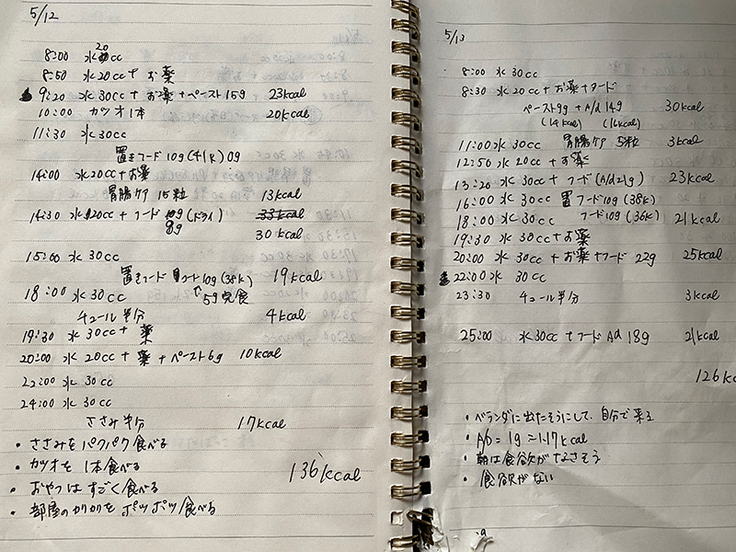 5/12
8:00 水20cc
8:50 水20cc+お薬
9:20 水30cc+お薬+ペースト15g 23kcal
10:00 カツオ1本 20kcal
11:30 水30cc
置きフード10g(41k) 0g
14:00 水20cc+お薬
胃腸ケア15粒 13kcal
14:30 水20cc+フード10g(ドライ) 33kcal
8g 30kcal
15:00 水30cc
置きフード 10g(38k) 19kcal
5g完食
18:00 水30cc
チュール半分 4kcal
19:30 水30cc+薬
20:00 水20cc+薬+ペースト6g 10kcal
22:00 水30cc
24:00 水30cc
ささみ半分 17kcal
・ささみをパクパク食べる
・カツオを1本食べる
・おやつはすごく食べる
・部屋のカリカリをポツポツ食べる
136kcal
5/13
8:00 水30cc
8:30 水20cc+お薬+フード
ペースト9g+A/d 14g 30kcal
(14kcal) (16kcal)
11:00 水30cc 胃腸ケア5粒 3kcal
12:50 水20cc+お薬
13:20 水30cc+フード(A/d 21g) 23kcal
16:00 水30cc 置フード10g(38k)
18:00 水30cc フード10g(36k) 21kcal
19:30 水30cc+お薬
20:00 水30cc+お薬+フード22g 25kcal
22:00 水30cc
23:30 チュール半分 3kcal
25:00 水30cc+フードAd 18g 21kcal
126kc
・ベランダに出たそうにして、自分で来る
・A6=1g≒1.17kcal
・朝は食欲がなさそう
・食欲がない